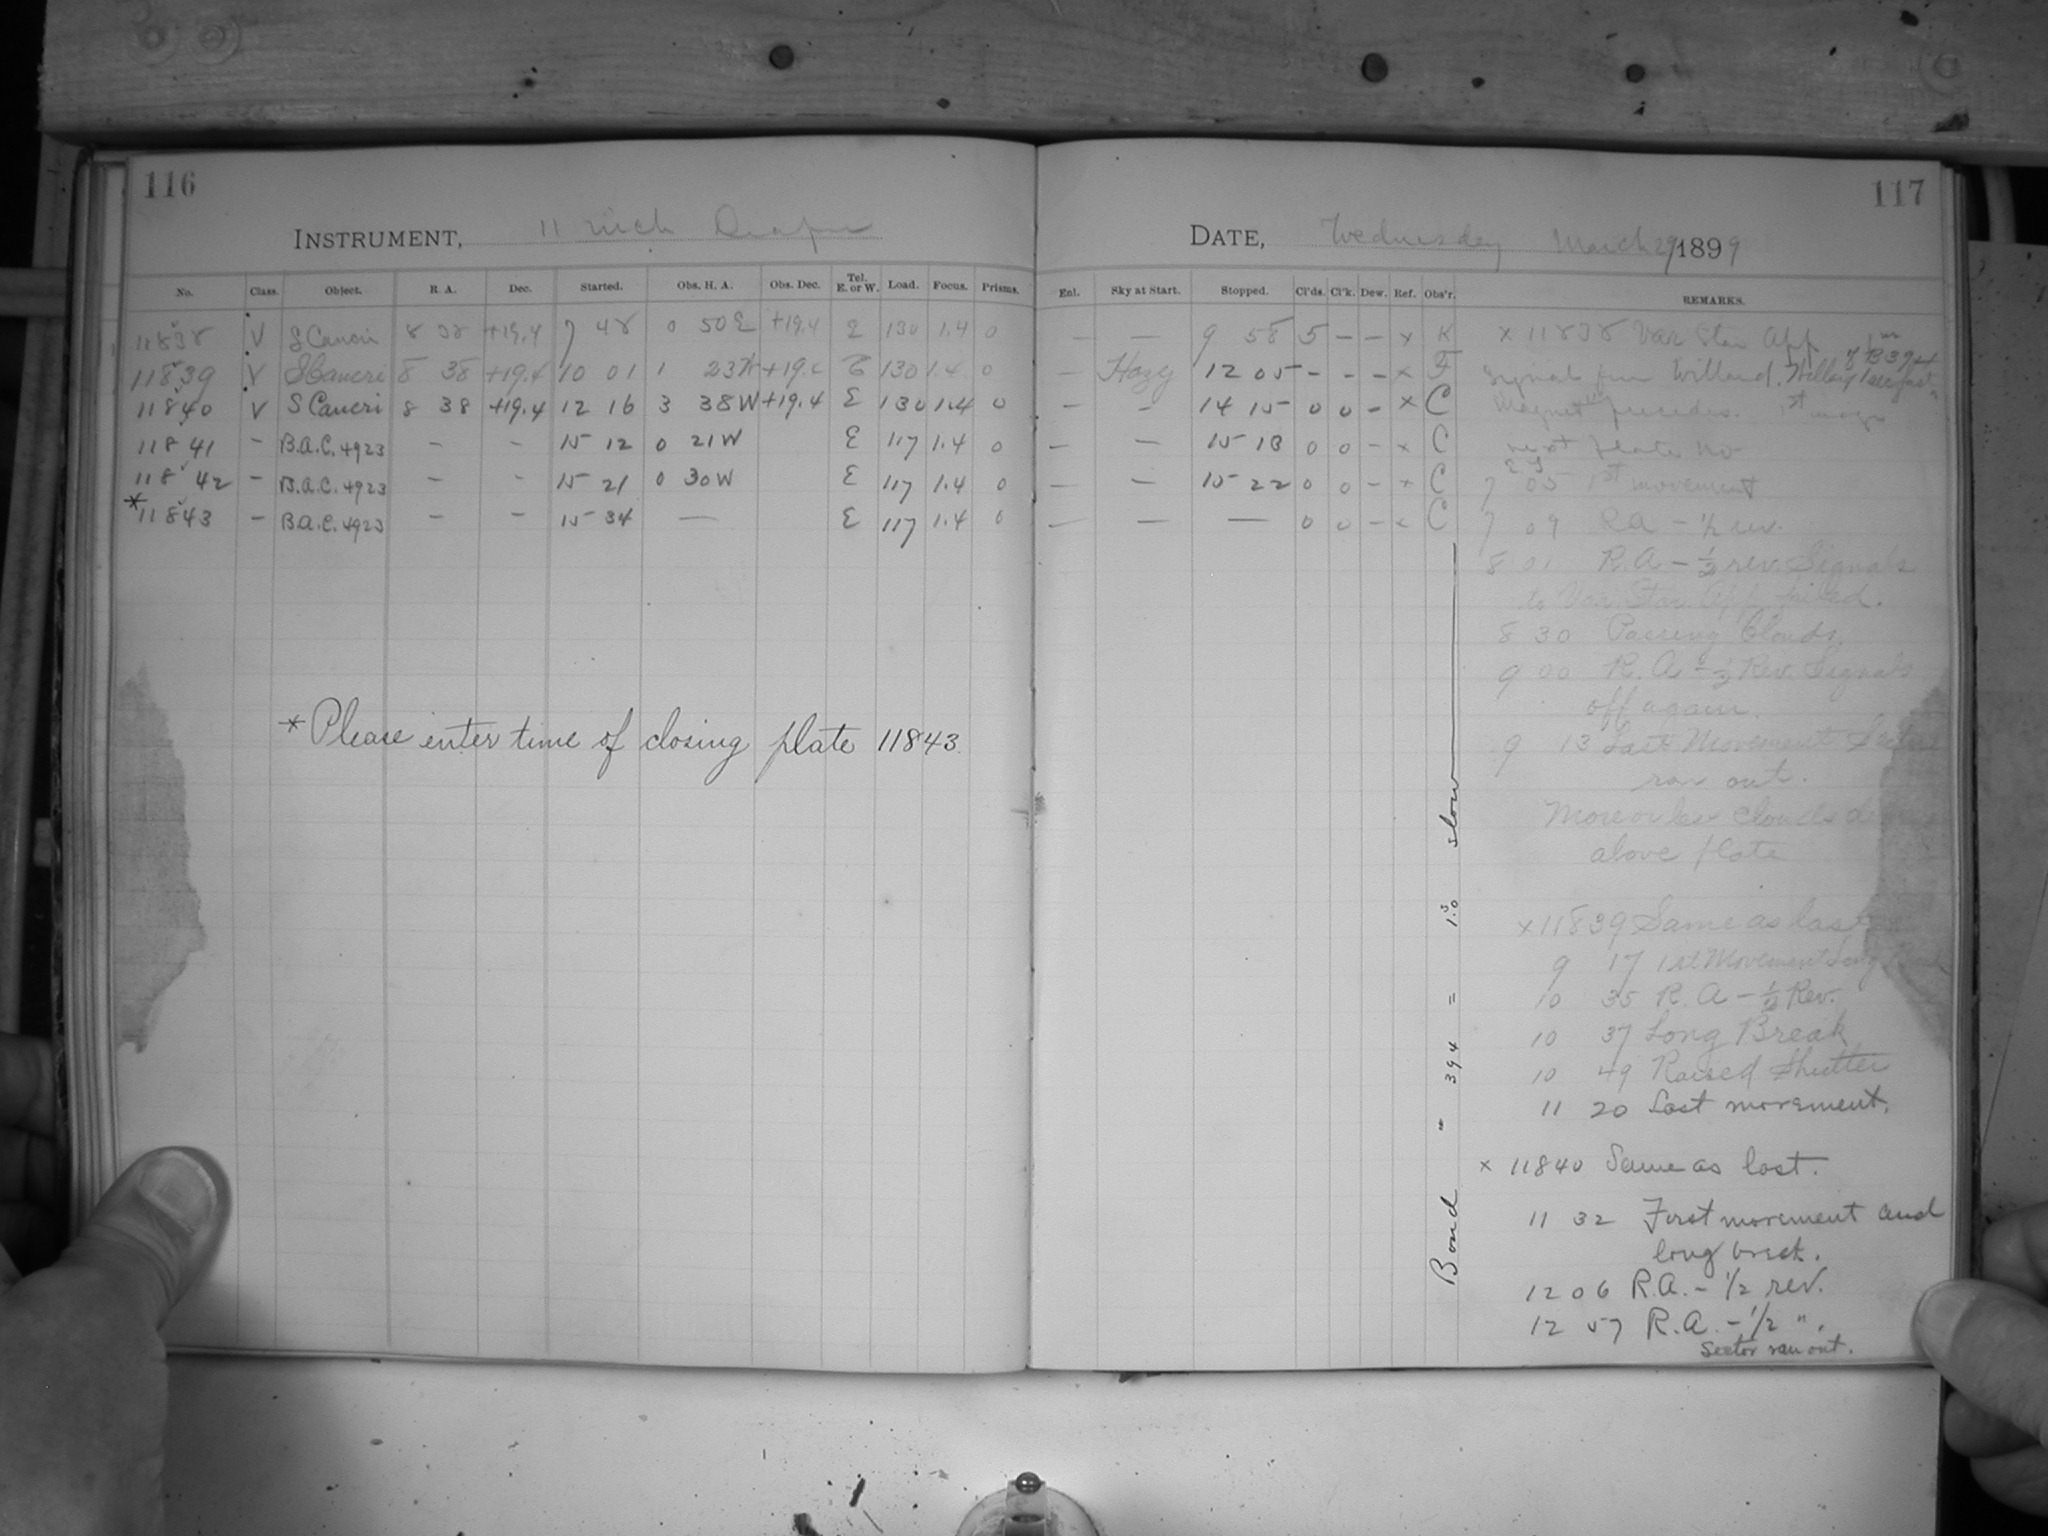 116
INSTRUMENT, 11 inch Draper
No. Class. Object. R A. Dec. Started. Obs. H. A. Obs. Dec. Tel. E. or W. Load. Focus. Prisms.
11838 V S Cancri 8 38 +19.4 7 48 0 50 E +19.4 E 130 1.4 0
11839 V S Cancri 8 38 +19.4 10 01 1 23 W +19.4 E 130 1.4 0
11840 V S Cancri 8 38 +19.4 12 16 3 38 W +19.4 E 130 1.4 0
11841 – B.A.C. 4923 – – 15 12 0 21 W E 117 1.4 0
11842 – B.A.C. 4923 – – 15 21 0 30 W E 117 1.4 0
*11843 – B.A.C. 4923 – – 15 34 — E 117 1.4 0
* Please enter time of closing plate 11843.
117
DATE, Wednesday March 29 1899
Enl. Sky at Start. Stopped. Cl'ds. Cl'k. Dew. Ref. Obs'r. REMARKS.
– — 9 58 5 – – x K
– Hazy 12 05 – – – x F
– – 14 15 0 0 – x C
– — 15 13 0 0 – x C
– — 15 22 0 0 – x C
— — — 0 0 – x C
Bond " 394 = 1.0s slow
x 11838 Var Star App
Signal from Willard
Magnet precedes. 1st
next plate no
7 05 1st movement
7 09 R.A – ½ rev.
8 01 R.A – ½ rev. Signals
to Var. Star App failed.
8 30 Passing Clouds.
9 00 R.A – ½ Rev. Signals
off again.
9 13 Last Movement Sector
ran out.
More or less Clouds
above plate
x 11839 Same as last
9 17 1st Movement Long
10 35 R.A – ½ Rev.
10 37 Long Break
10 49 Raised Shutter
11 20 Last movement.
x 11840 Same as last.
11 32 First movement and
long break.
12 06 R.A. – 1/2 rev.
12 57 R.A. – 1/2 ".
Sector ran out.